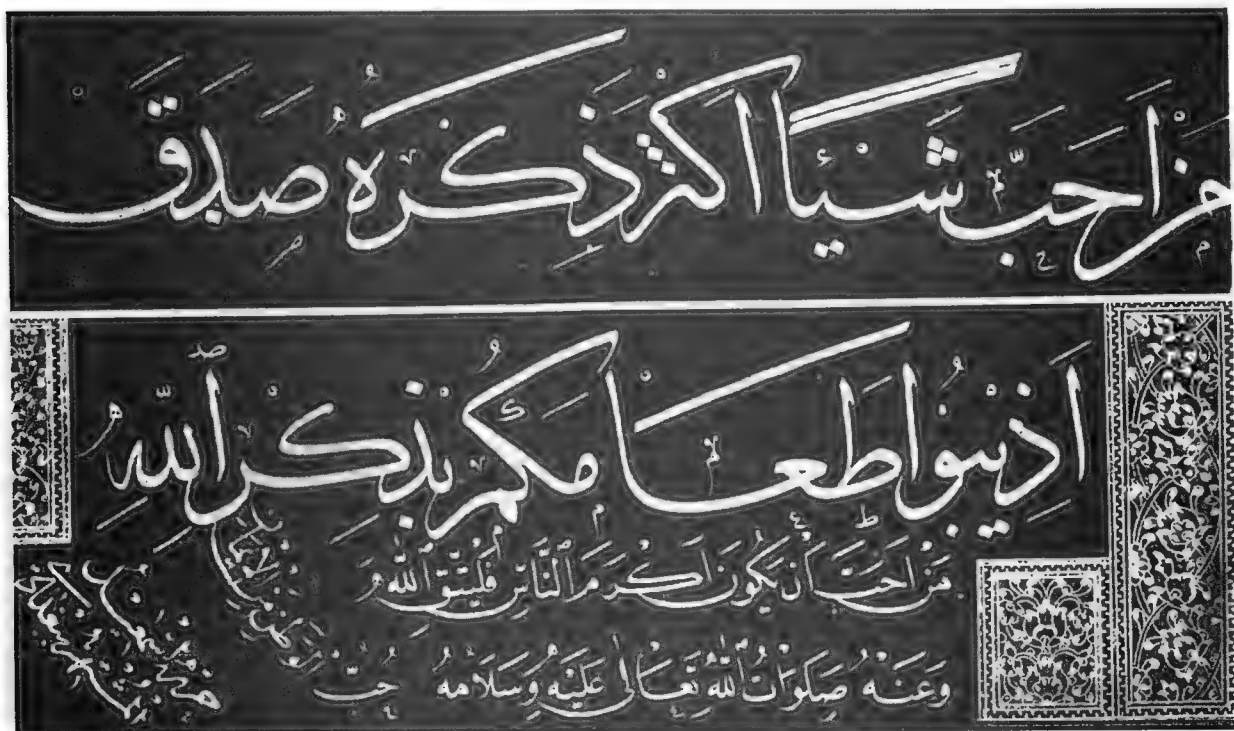 مَنْ اَحَبَّ شَيْئًا اَكْثَرَ ذِكْرَهُ صَدَقَ
اَذِيبُوا طَعَامَكُمْ بِذِكْرِ اللّٰهِ
مَنْ اَحَبَّ اَنْ يَكُونَ اَكْرَمَ النَّاسِ فَلْيَتَّقِ اللّٰهَ
وَعَنْهُ صَلَوَاتُ اللّٰهِ تَعَالٰى عَلَيْهِ وَسَلَامُهُ حُبُّ